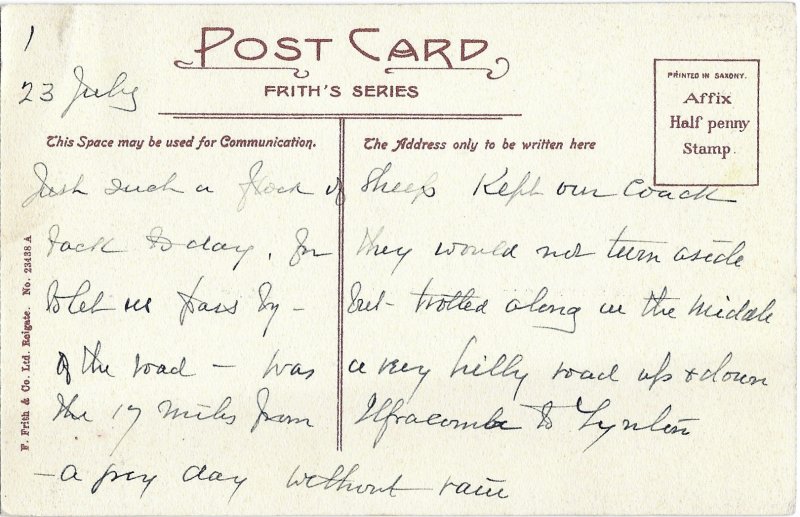 1
POST CARD
23 July
FRITH'S SERIES
PRINTED IN SAXONY.
Affix
Half penny
Stamp.
This Space may be used for Communication.
The Address only to be written here
Just such a flock of sheep kept our coach
back today, for they would not turn aside
to let us pass by - but trotted along in the middle
of the road - was a very hilly road up & down
the 17 miles from Ilfracombe to Lynton
- a grey day without rain
F. Frith & Co. Ltd. Reigate. No. 23438 A